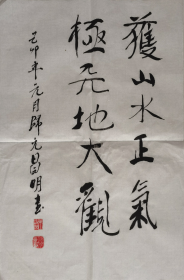 獲山水正氣
極天地大觀
己卯年元月歸元昌明書